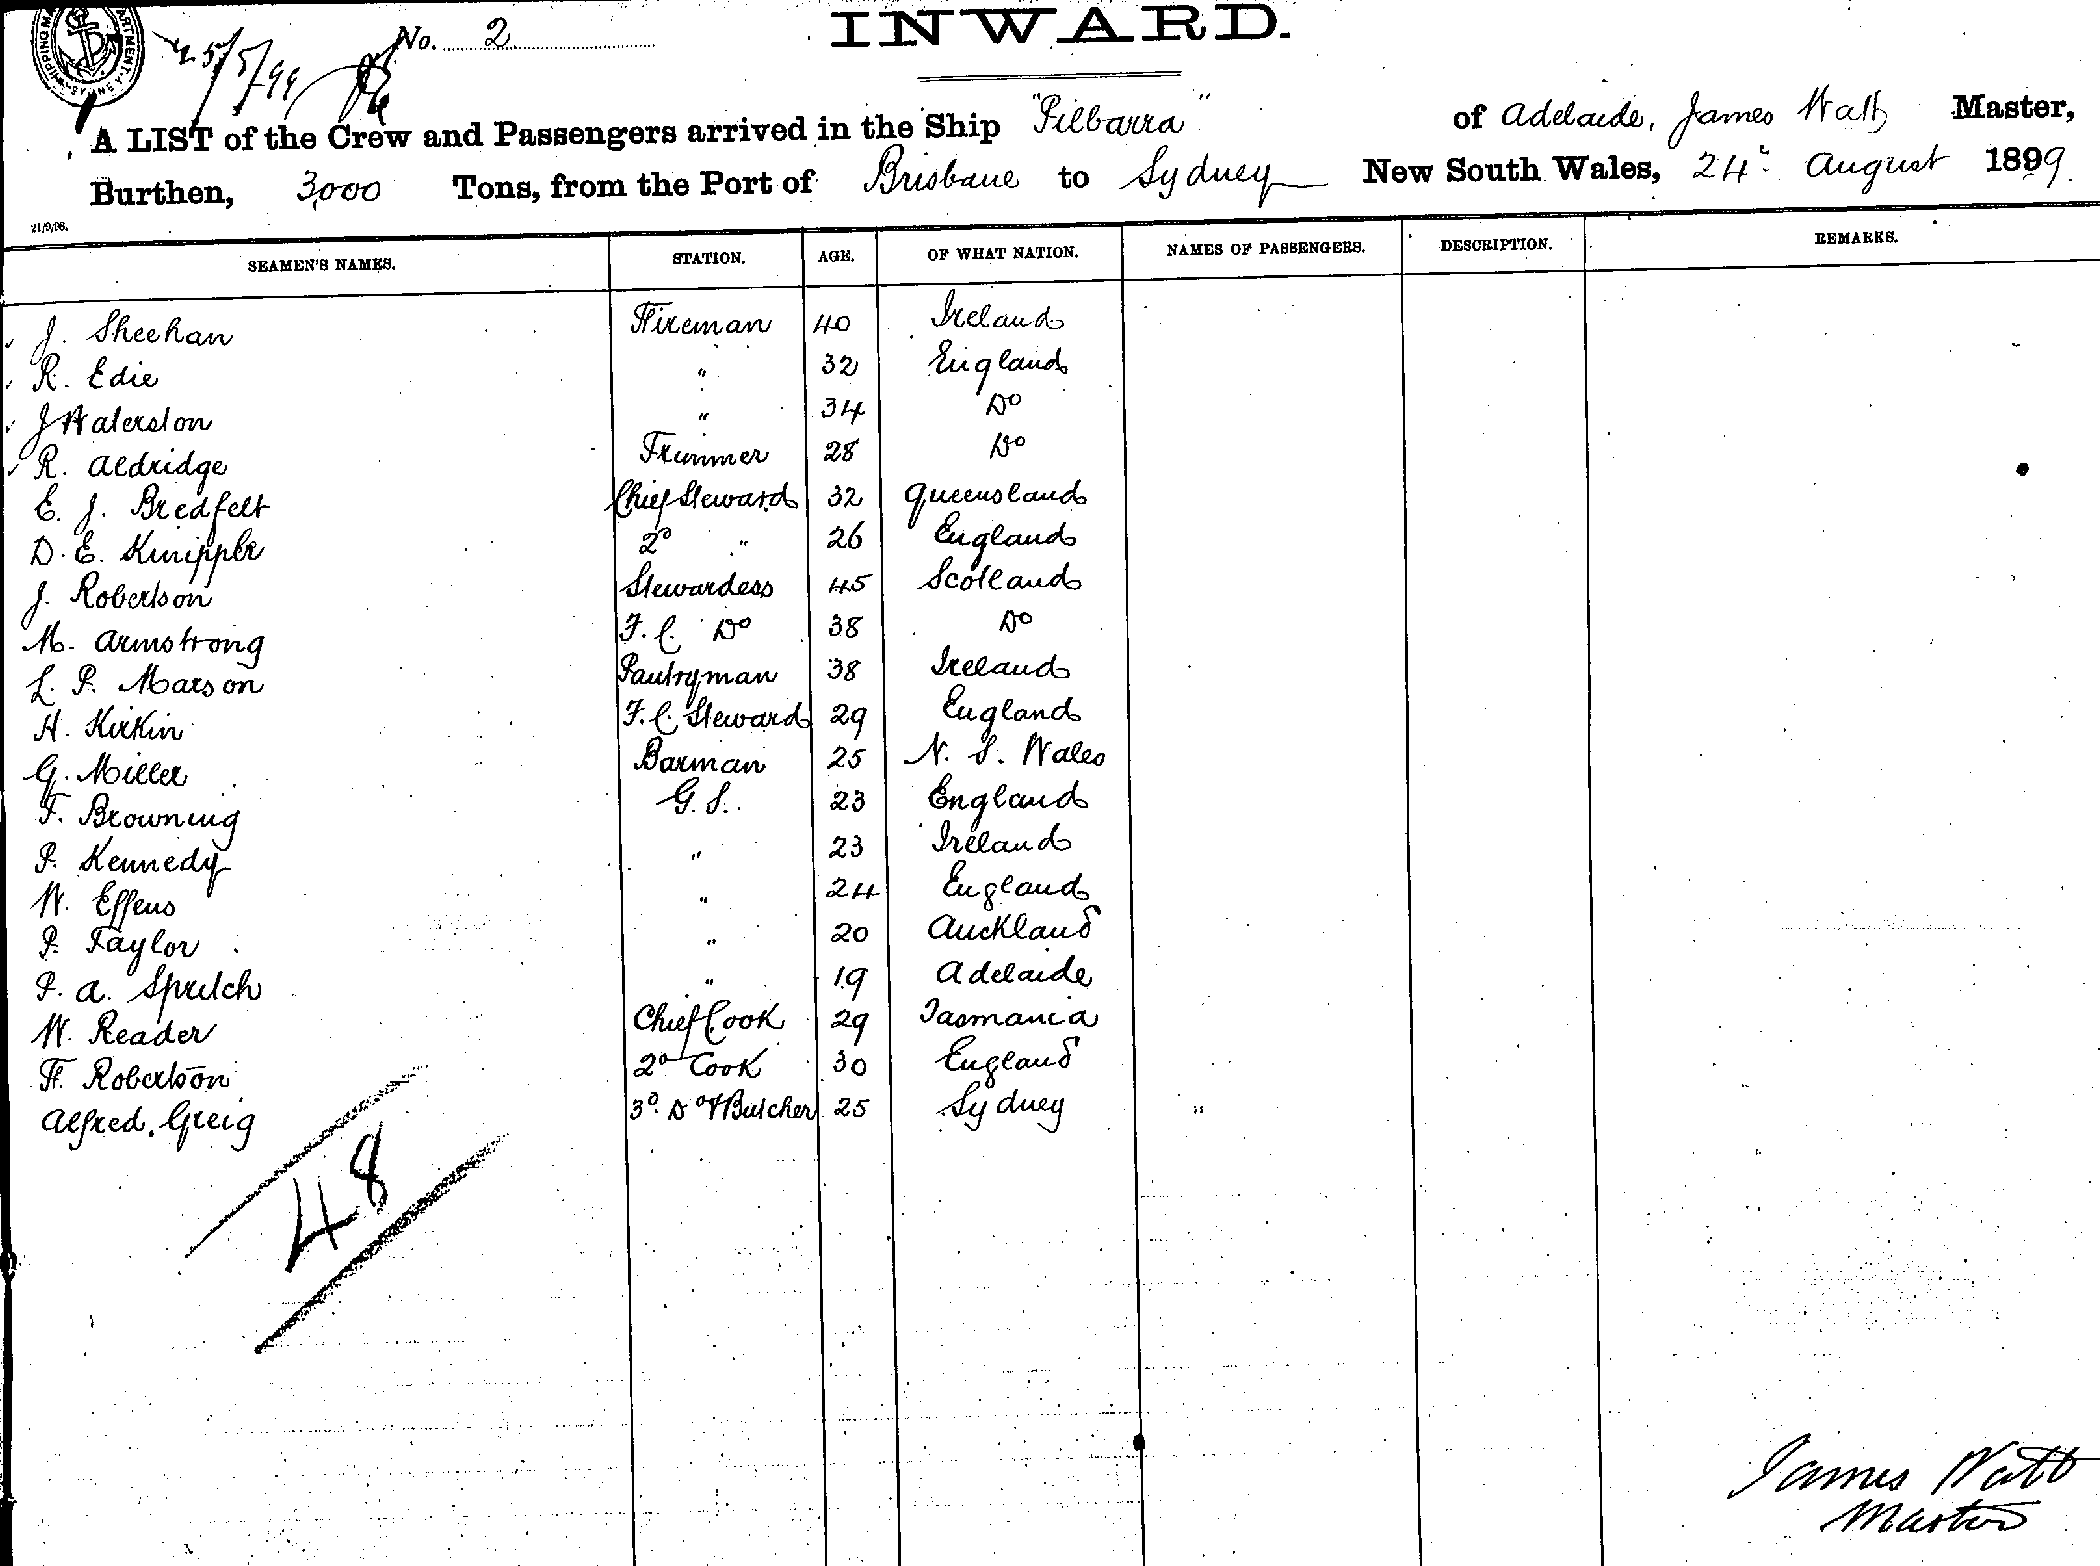 No. 2
INWARD.
25/5/99
A LIST of the Crew and Passengers arrived in the Ship "Pilbarra" of Adelaide, James Watt Master,
Burthen, 3,000 Tons, from the Port of Brisbane to Sydney New South Wales, 24" August 1899.
21/9/98.
SEAMEN'S NAMES. STATION. AGE. OF WHAT NATION. NAMES OF PASSENGERS. DESCRIPTION. REMARKS.
J. Sheehan Fireman 40 Ireland
R. Edie " 32 England
J Waterston " 34 Do
R. Aldridge Trimmer 28 Do
E. J. Bredfelt Chief Steward 32 Queensland
D. E. Knipple 2o " 26 England
J. Robertson Stewardess 45 Scotland
M. Armstrong F. C. Do 38 Do
L. P. Marson Pantryman 38 Ireland
H. Kirkin F. C. Steward 29 England
G. Miller Barman 25 N. S. Wales
F. Browning G. S. 23 England
P. Kennedy " 23 Ireland
W. Effens " 24 England
P. Taylor " 20 Auckland
P. A. Sprutch " 19 Adelaide
W. Reader Chief Cook 29 Tasmania
F. Robertson 2o Cook 30 England
Alfred. Greig 3o. Do & Butcher 25 Sydney "
48
James Watt
Master